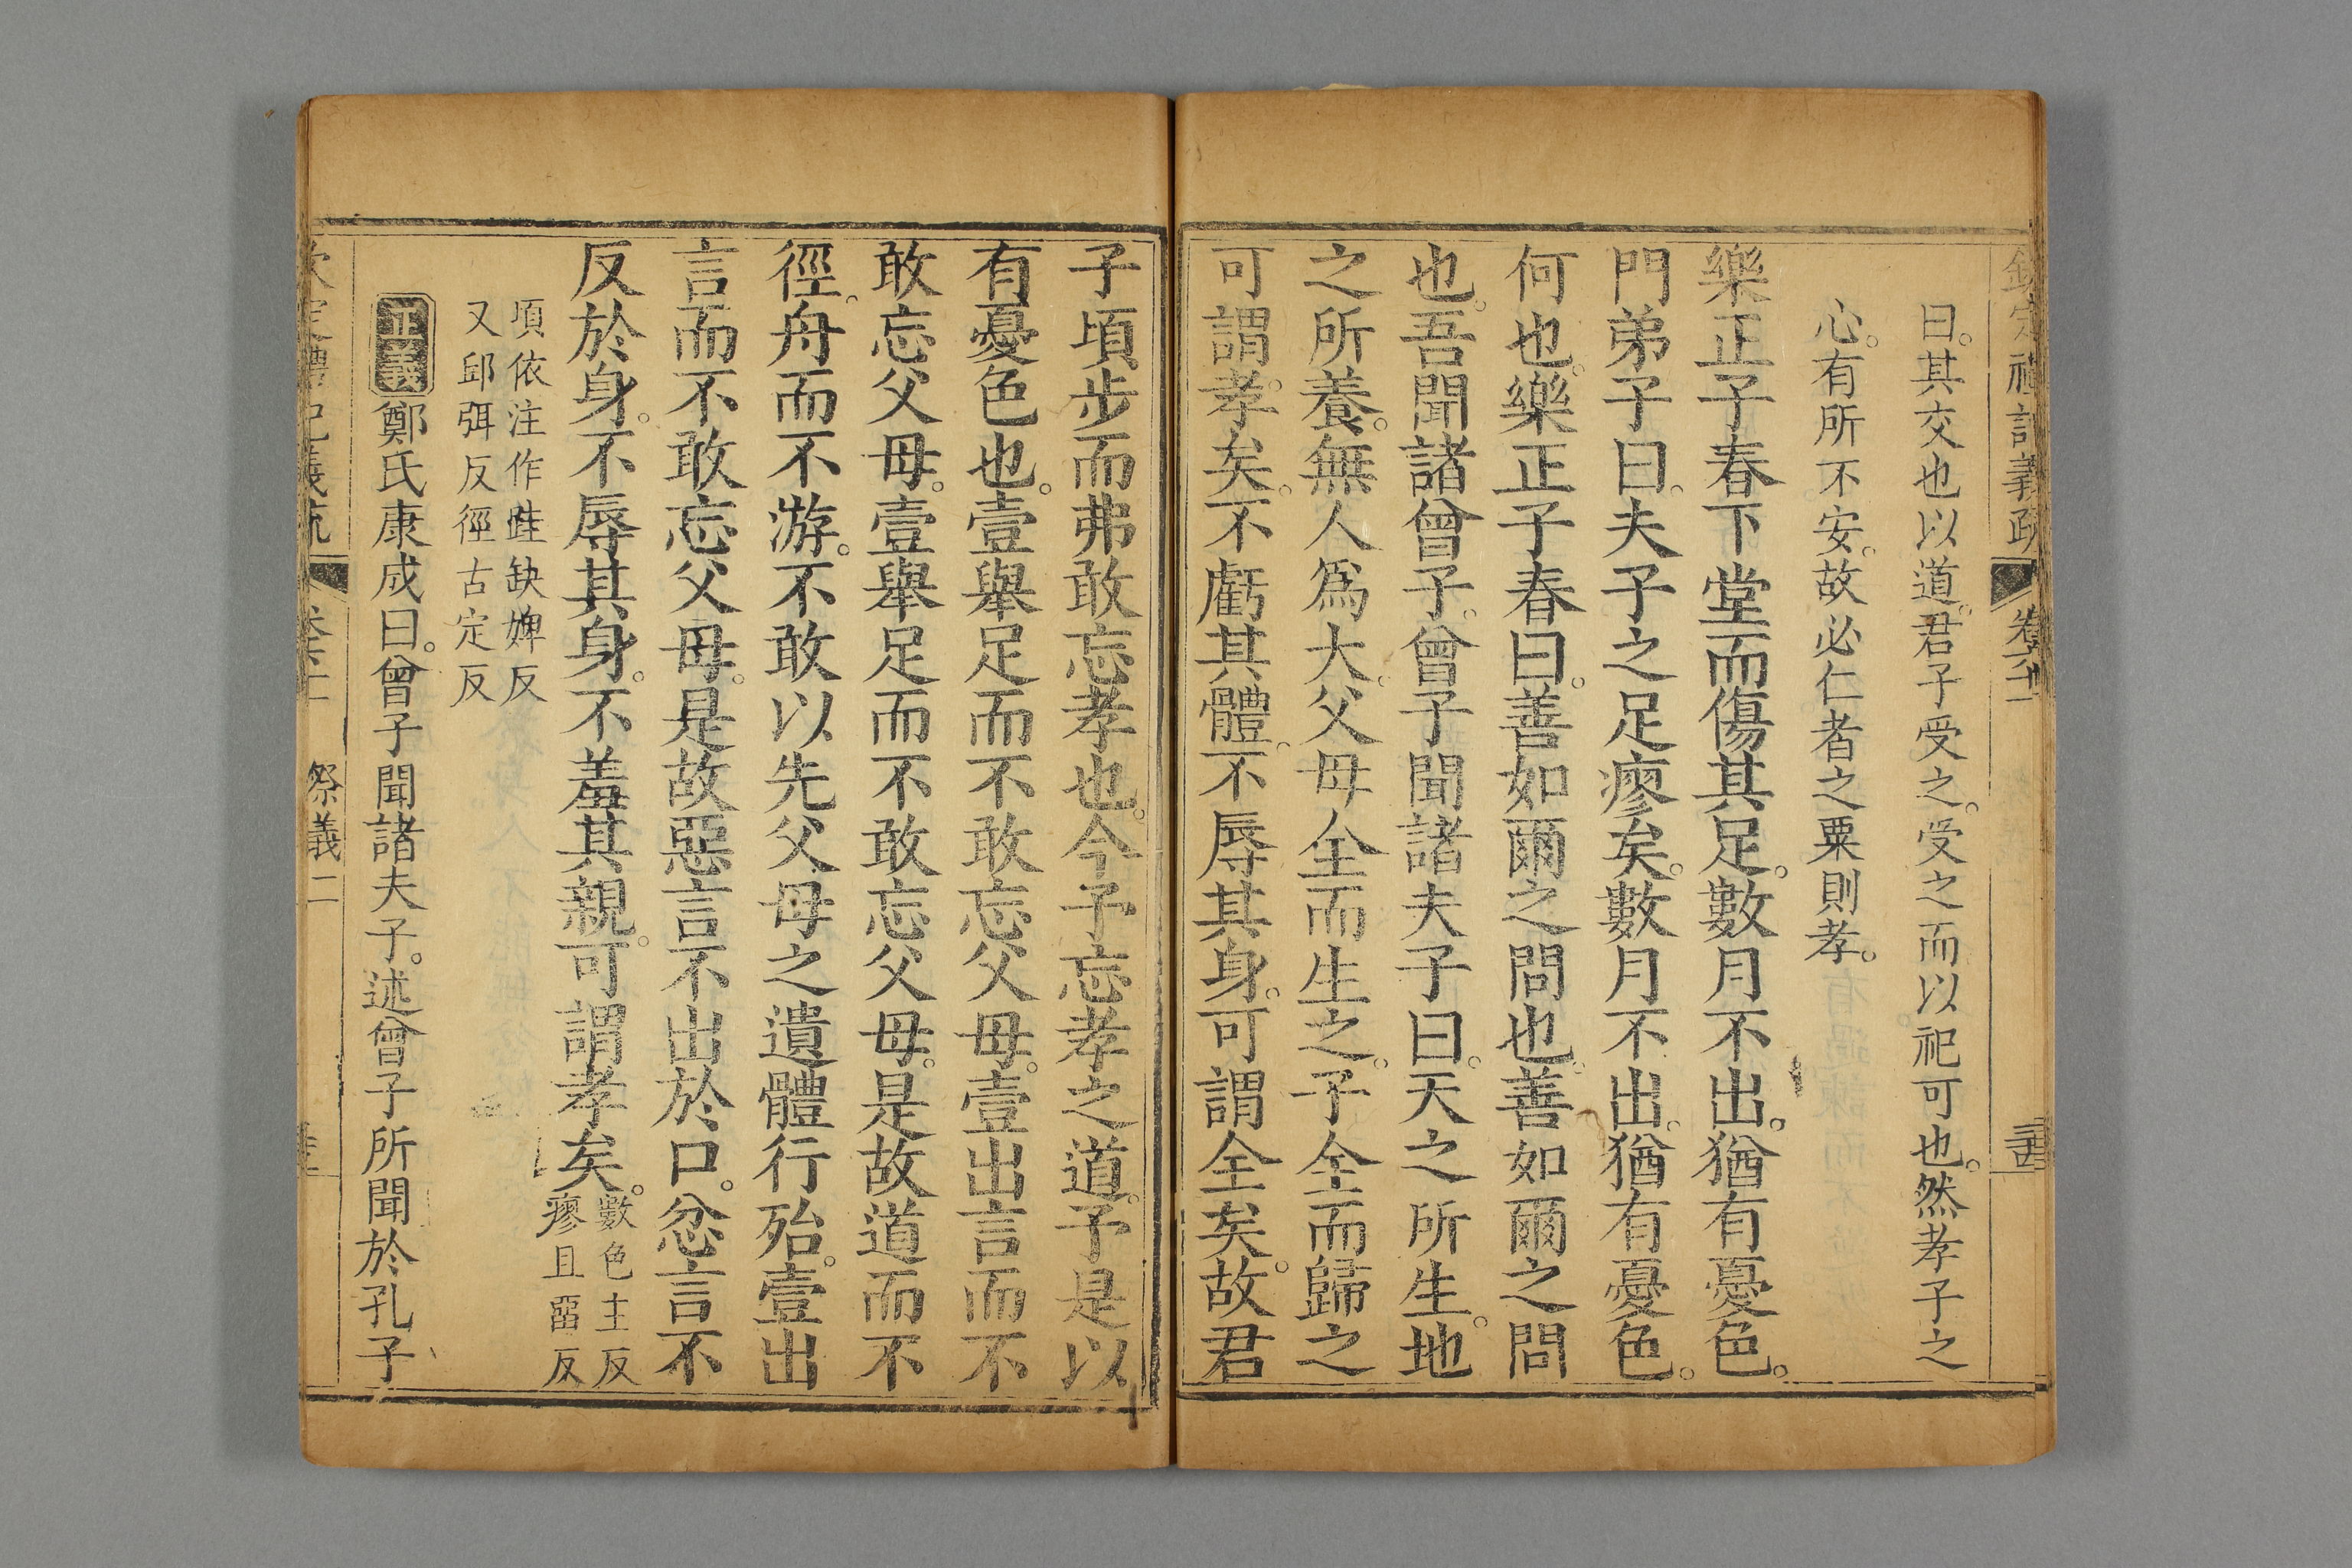 欽定禮記義疏 卷六十一 三西
曰。其交也以道。君子受之。受之而以祀可也。然孝子之
心。有所不安。故必仁者之粟則孝。
樂正子春下堂而傷其足。數月不出。猶有憂色。
門弟子曰。夫子之足瘳矣。數月不出。猶有憂色。
何也。樂正子春曰。善如爾之問也。善如爾之問
也。吾聞諸曾子。曾子聞諸夫子曰。天之所生。地
之所養。無人爲大。父母全而生之。子全而歸之
可謂孝矣。不虧其體。不辱其身。可謂全矣。故君
子頃步而弗敢忘孝也。今予忘孝之道。予是以
有憂色也。壹舉足而不敢忘父母。壹出言而不
敢忘父母。壹舉足而不敢忘父母。是故道而不
徑。舟而不游。不敢以先父母之遺體行殆。壹出
言而不敢忘父母。是故惡言不出於口。忿言不
反於身。不辱其身。不羞其親。可謂孝矣。數色主反
瘳且畱反
頃依注作跬缺婢反
又邱弭反徑古定反
正義 鄭氏康成曰。曾子聞諸夫子。述曾子所聞於孔子
欽定禮記義疏 祭義二